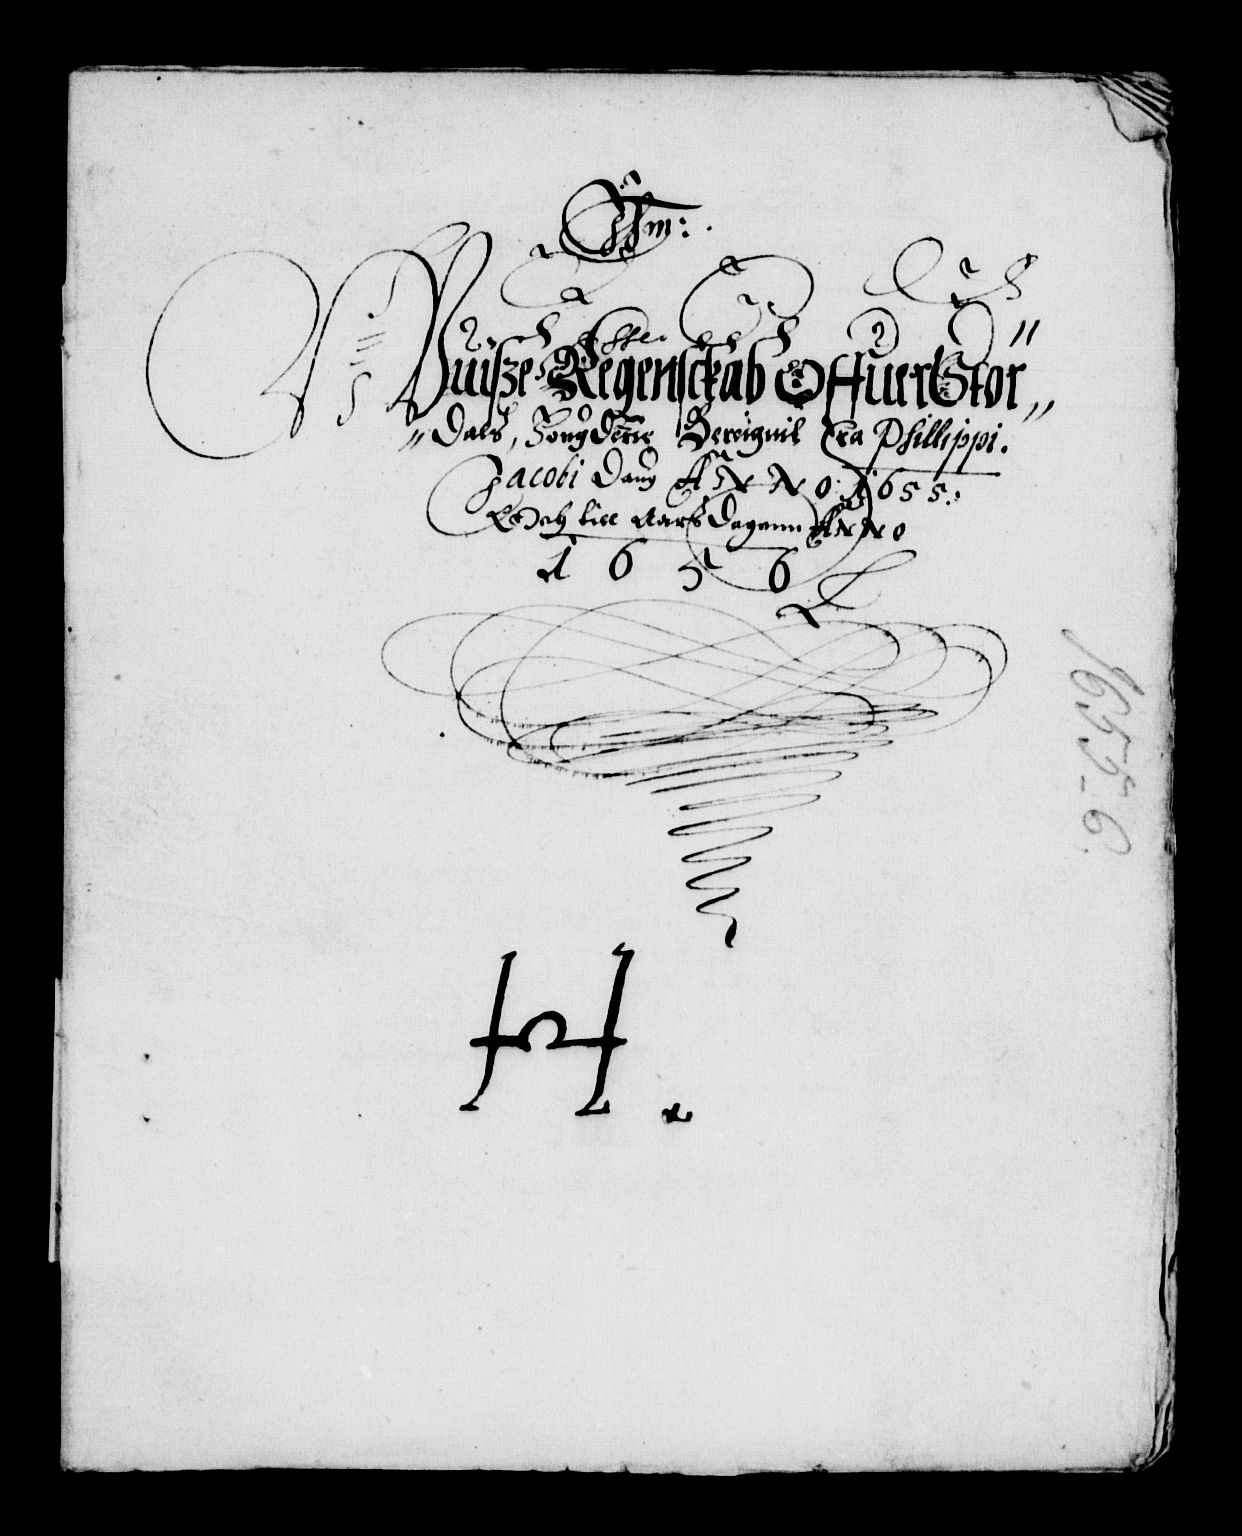 Wisze Regenskab Offuer Stor
Dals, Fougderie Bereignit fra Phillippi.
Jacobi Daug Anno 1655:
Och till Aars Dagenn Anno
1656
H.
1655-6.